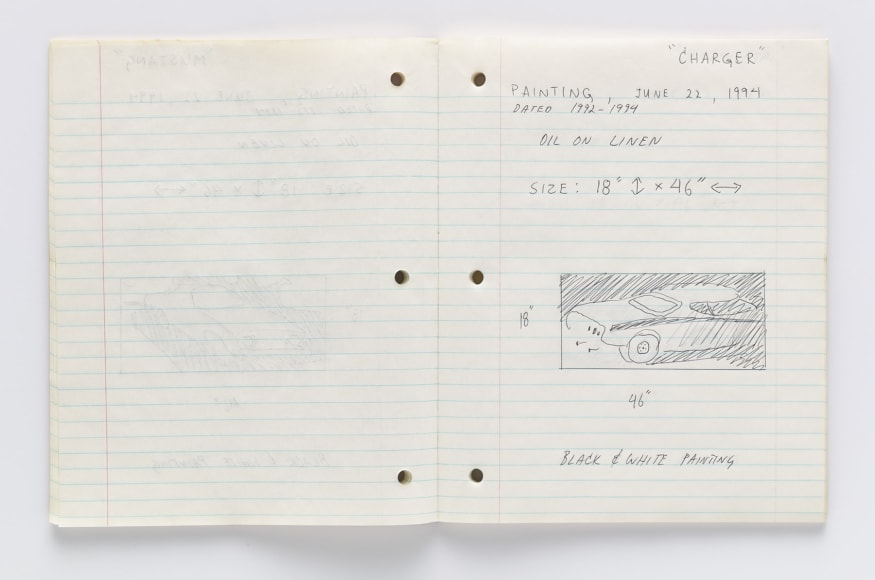 "CHARGER"
PAINTING, JUNE 22, 1994
DATED 1992-1994
OIL ON LINEN
SIZE: 18" ↕ × 46" ↔
18"
46"
BLACK & WHITE PAINTING